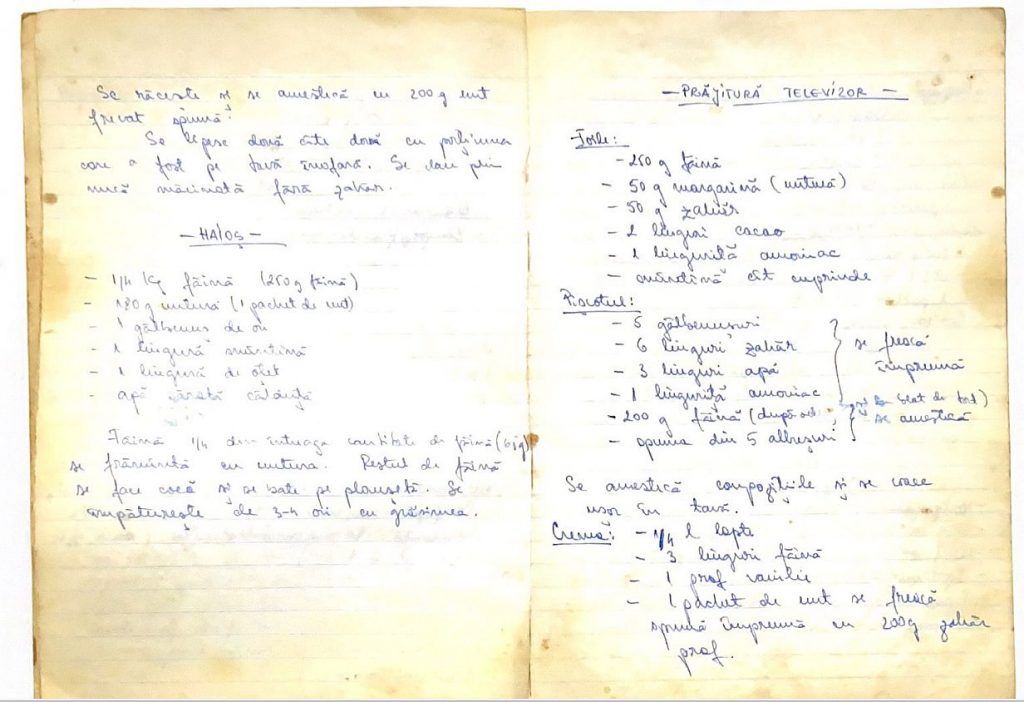 Se răcește și se amestică cu 200 g unt
frecat spumă.
Se lipesc două câte două cu porțiunea
care a fost pe tavă înafară. Se dau prin
nucă măcinată fără zahar.
— HAIOȘ —
- 1/4 Kg făină (250 g făină)
- 180 g untură (1 pachet de unt)
- 1 gălbenus de ou
- 1 lingură smântină
- 1 lingură de oțet
- apă sărată călduță
Făină 1/4 din întreaga cantitate de făină (65 g)
se frământă cu untura. Restul de făină
se face cocă și se bate pe planșetă. Se
împăturește de 3-4 ori cu grăsimea.
— PRĂJITURĂ TELEVIZOR —
Foile:
- 250 g făină
- 50 g margarină (untură)
- 50 g zahăr
- 2 linguri cacao
- 1 linguriță amoniac
- smântină cît cuprinde
Piscotul:
- 5 gălbenușuri
- 6 linguri zahăr se freacă
- 3 linguri apă împreună
- 1 linguriță amoniac
- 200 g făină (după se amestică
- spuma din 5 albușuri
Se amestică compozițiile și se coace
ușor în tavă.
Crema: - 1/4 l lapte
- 3 linguri făină
- 1 praf vanilie
- 1 pachet de unt se freacă
spumă împreună cu 200 g zahăr
praf.